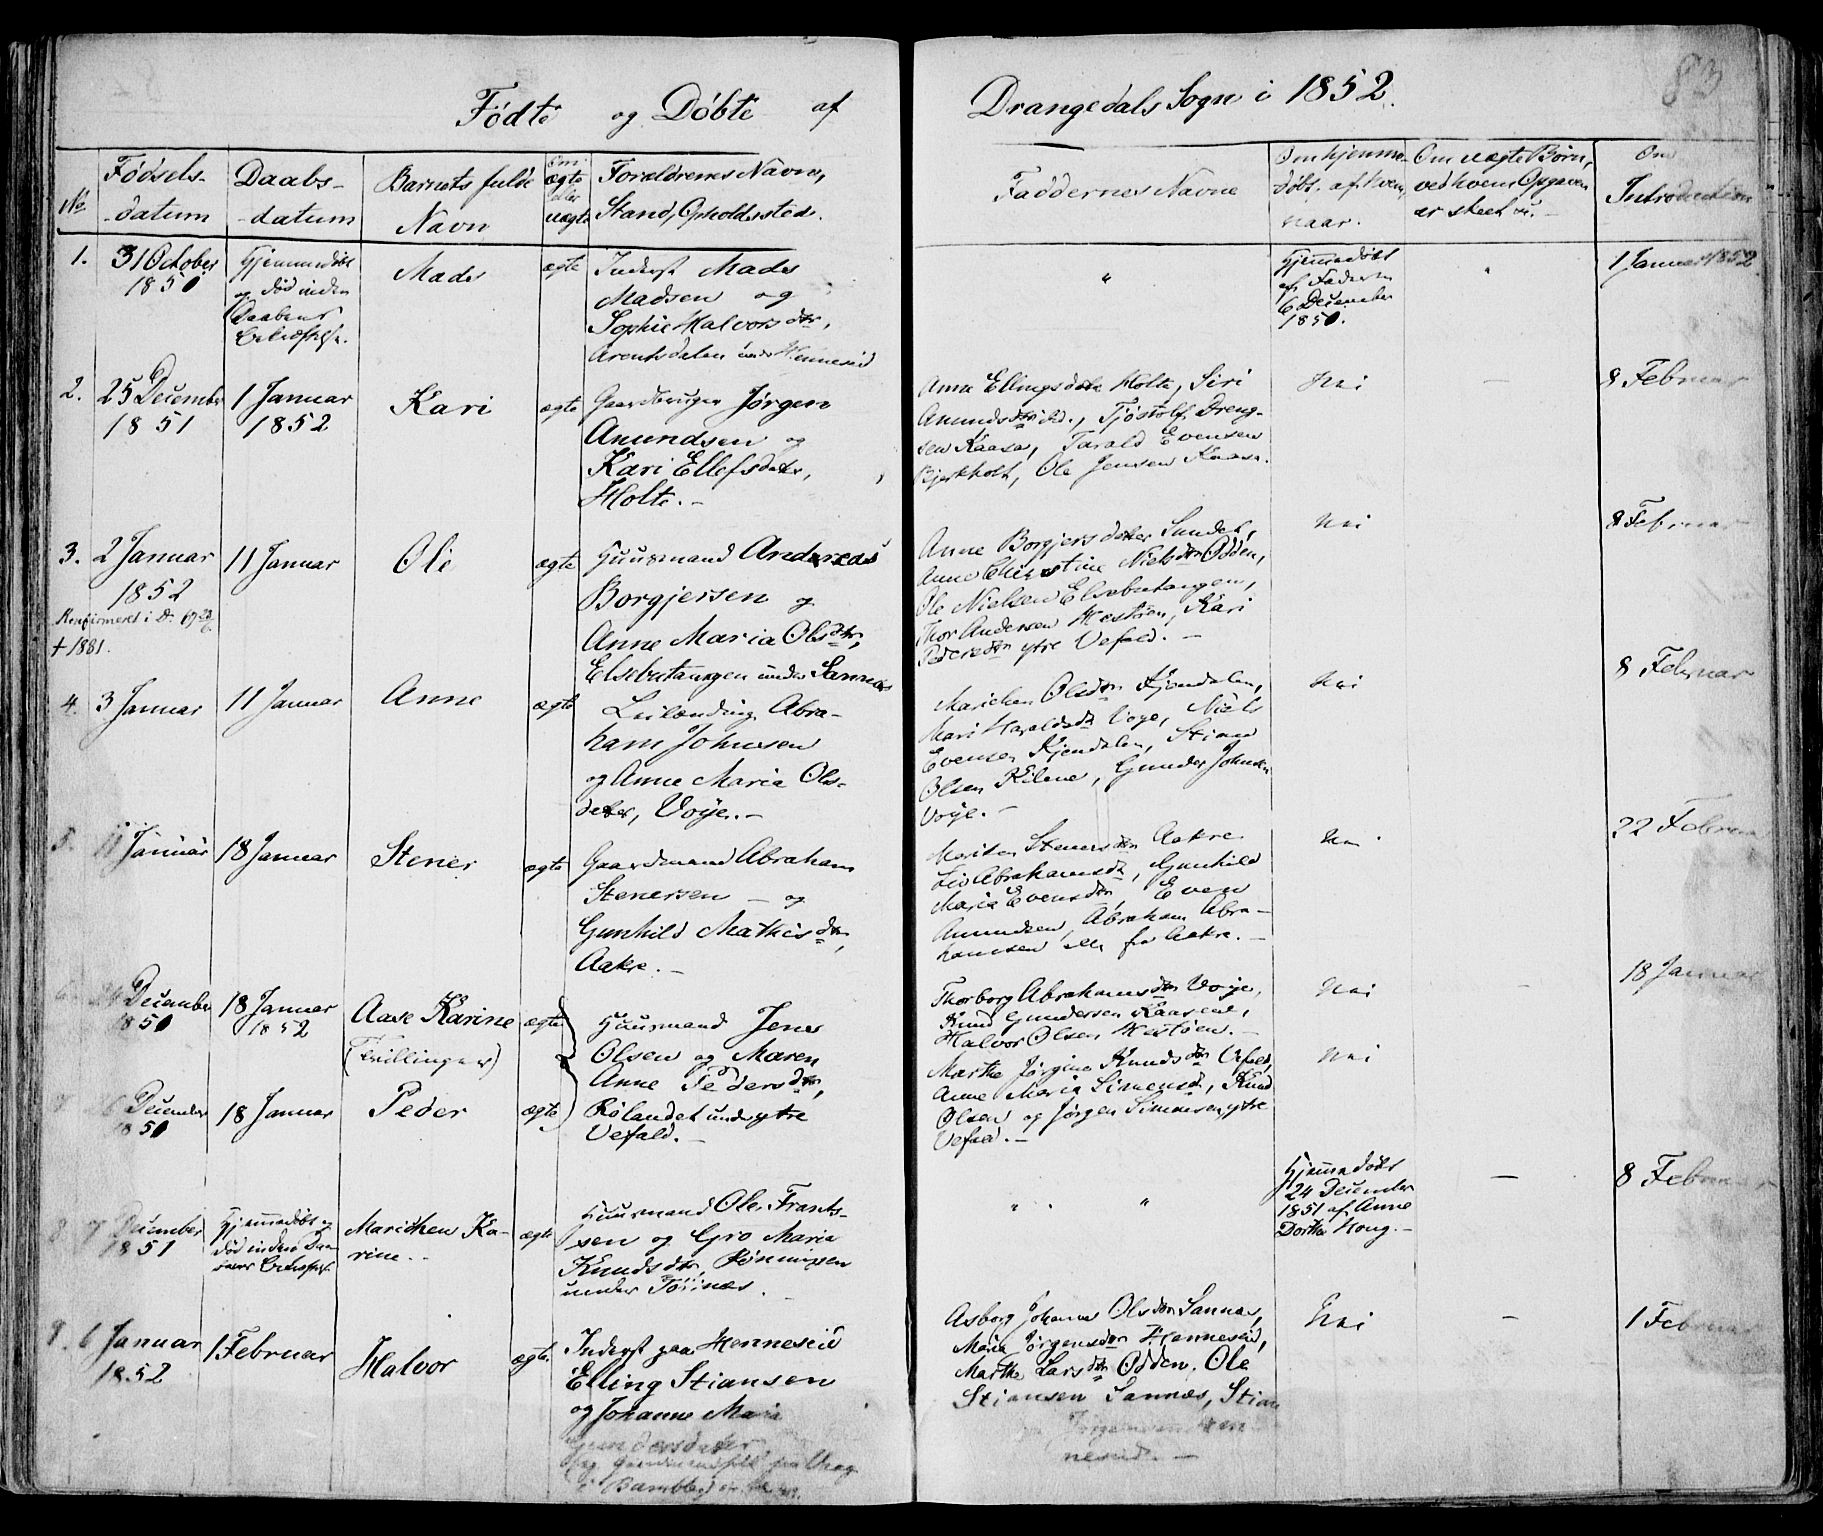 83
Født og Døbte af Drangedals Sogn i 1852.
No
Fødsels-
datum
Daabs-
datum
Barnets fulde
Navn
Om
ægte
eller
uægte
Forældrenes Navn,
Stand, Opholdssted.
Faddernes Navne
Om hjemme-
døbt, af hvem,
naar.
Om uægte Børn,
ved hvem Opgaven
er skeet
Om
Introduction
1.
31 October
1851
Hjemmedøbt
og død inden
Daabens
Mads
ægte
Inderst Mads
Madsen og
Sophie Halvorsdtr,
Arentsdalen under Henneseid
"
Hjemmedøbt
af Faderen
6 December
1851.
"
1 Januar 1852
2.
25 December
1851
1 Januar
1852
Kari
ægte
Gaardbruger Jørgen
Anundsen og
Kari Ellefsdater,
Holte.-
Anne Ellingsdatter Holte, Siri
Anundsdtr ibd., Tjøstolf Dreng-
sen Kaasa, Tarald Evensen
Bjerkholt, Ole Jensen Kaasa.
Nei
-
8 Februar
3.
2 Januar
1852
Konfirmeret i D.
† 1881.
11 Januar
Ole
ægte
Huusmand Andreas
Borgjersen og
Anne Maria Olsdtr,
Elsebutangen under Sannes
Anne Borgjersdatter Sundet,
Anne Christine Nielsdtr Odden,
Ole Nielsen Elsebutangen,
Thor Andersen Hestøen, Kari
Pedersdtr ytre Vefald.-
Nei
8 Februar
4.
3 Januar
11 Januar
Anne
ægte
Leilænding Abra-
ham Johnsen
og Anne Maria Ols-
dater, Voje.-
Marichen Olsdtr Kjendalen,
Mari Haraldsdtr Voje, Niels
Evensen Kjendalen, Stian
Olsen Kilene, Gunder Johnsen
Voje.-
Nei
8 Februar
5.
11 Januar
18 Januar
Stener
ægte
Gaardmand Abraham
Stenersen - og
Gunhild Mathisdtr,
Aakre.-
Mariken Stenersdtr Aakre
Liv Abrahamsdtr, Gunhild
Maria Evensdtr, Even
Anundsen, Abraham Abra-
hamsen alle fra Aakre.-
Nei
22 Februar
6.
December
1851
18 Januar
1852
Aase Karine
(Tvillinger)
ægte
Huusmand Jens
Olsen og Maren
Anne Pedersdtr,
Rølandet under ytre
Vefald.-
Thorborg Abrahamsdtr Voje,
Knud Gundersen Kaasene,
Halvor Olsen Hestøen.-
Nei
-
18 Januar
7
December
1851
18 Januar
Peder
ægte
Marthe Jørgine Knudsdtr Vefald,
Anne Maria Simensdtr, Knud
Olsen og Jørgen Simonsen, ytre
Vefald.-
Nei
8
7 December
1851
Hjemmedøbt og
død inden Daa-
Marichen Ka-
rine.-
ægte
Huusmand Ole Frants-
sen og Gro Maria
Knudsdtr, Rønningen
under Tørnæs.
" "
Hjemmedøbt
24 December
1851 af Anne
Dorthe Houg.-
-
8 Februar
9.
6 Januar
1852
1 Februar
Halvor
ægte
Inderst paa Henneseid
Elling Stiansen
og Johanne Maria
Gundersdater
Asborg Johanne Olsdtr Sannæs,
Maria Jørgensdtr Henneseid,
Marthe Larsdtr Odden, Ole
Stiansen Sannæs, Stian
Jørgensen Hen-
neseid.-
Nei
-
1 Februar